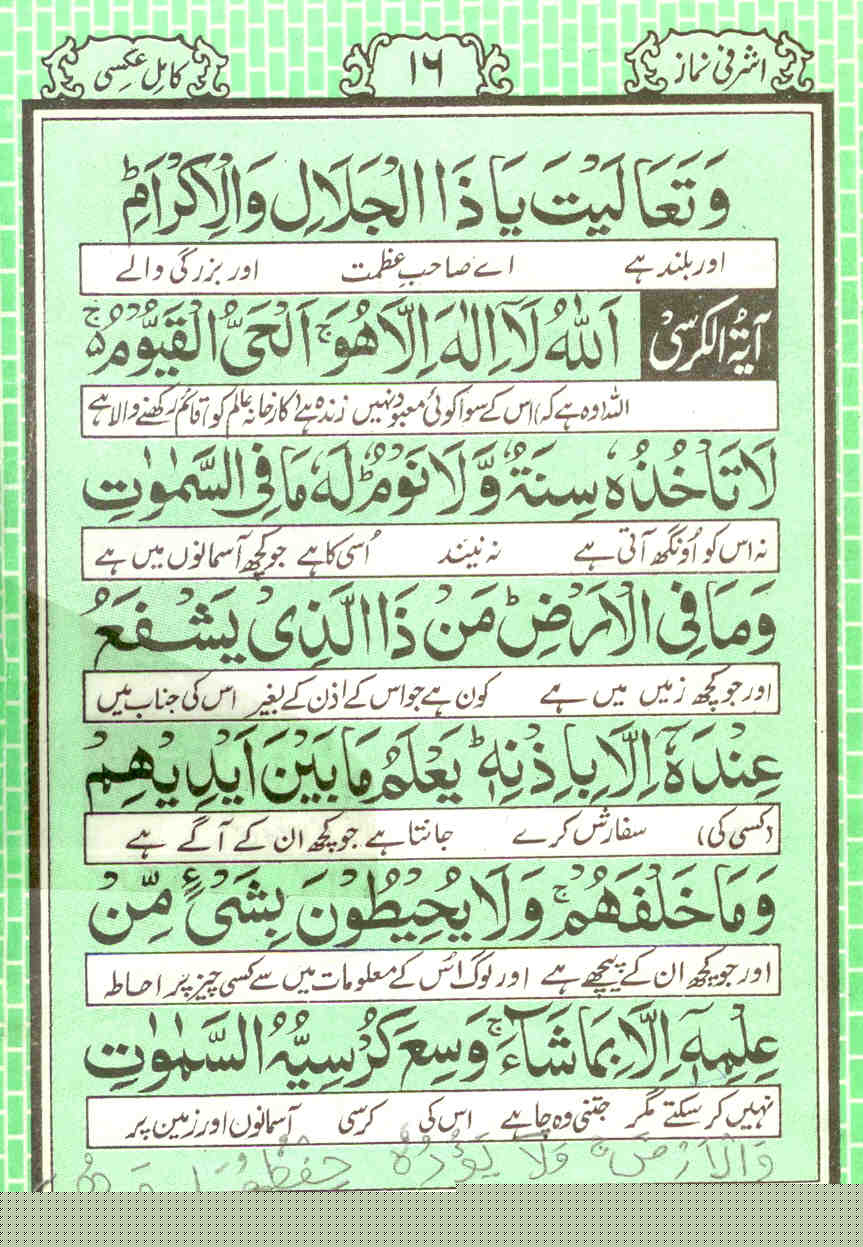 اشرفی نماز
۱۶
کامل عکسی
وَتَعَالَيْتَ يَا ذَا الْجَلَالِ وَالْاِكْرَامِؕ
اور بلند ہے اے صاحبِ عظمت اور بزرگی والے
آیۃ الکرسی
اَللّٰهُ لَآ اِلٰهَ اِلَّا هُوَۚ اَلْحَیُّ الْقَيُّوْمُ ۚ۬
اللہ (وہ ہے کہ) اس کے سوا کوئی معبود نہیں زندہ ہے (کارخانہ عالم کو) قائم رکھنے والا ہے
لَا تَاْخُذُهٗ سِنَةٌ وَّلَا نَوْمٌؕ لَهٗ مَا فِی السَّمٰوٰتِ
نہ اس کو اُونگھ آتی ہے نہ نیند اُسی کا ہے جو کچھ آسمانوں میں ہے
وَمَا فِی الْاَرْضِؕ مَنْ ذَا الَّذِیْ يَشْفَعُ
اور جو کچھ زمیں میں ہے کون ہے جو اس کے اذن کے بغیر اس کی جناب میں
عِنْدَهٗٓ اِلَّا بِاِذْنِهٖؕ يَعْلَمُ مَا بَيْنَ اَيْدِيْهِمْ
(کسی کی) سفارش کرے جانتا ہے جو کچھ ان کے آگے ہے
وَمَا خَلْفَهُمْۚ وَلَا يُحِيْطُوْنَ بِشَیْءٍ مِّنْ
اور جو کچھ ان کے پیچھے ہے اور لوگ اس کے معلومات میں سے کسی چیز پر احاطہ
عِلْمِهٖٓ اِلَّا بِمَا شَآءَۚ وَسِعَ كُرْسِيُّهُ السَّمٰوٰتِ
نہیں کر سکتے مگر جتنی وہ چاہے اس کی کرسی آسمانوں اور زمین پر
وَالْاَرْضَۚ وَلَا يَؤُدُهٗ